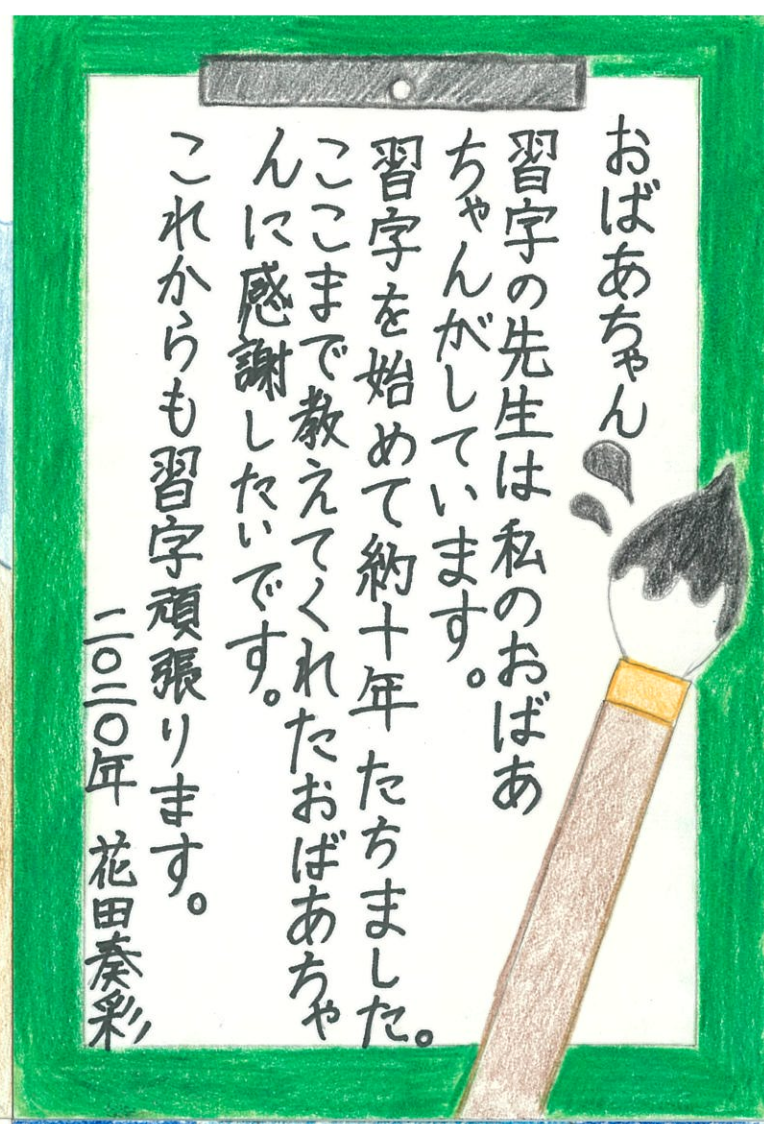 おばあちゃん
習字の先生は私のおばあ
ちゃんがしています。
習字を始めて約十年たちました。
ここまで教えてくれたおばあちゃ
んに感謝したいです。
これからも習字頑張ります。
二〇二〇年 花田奏彩